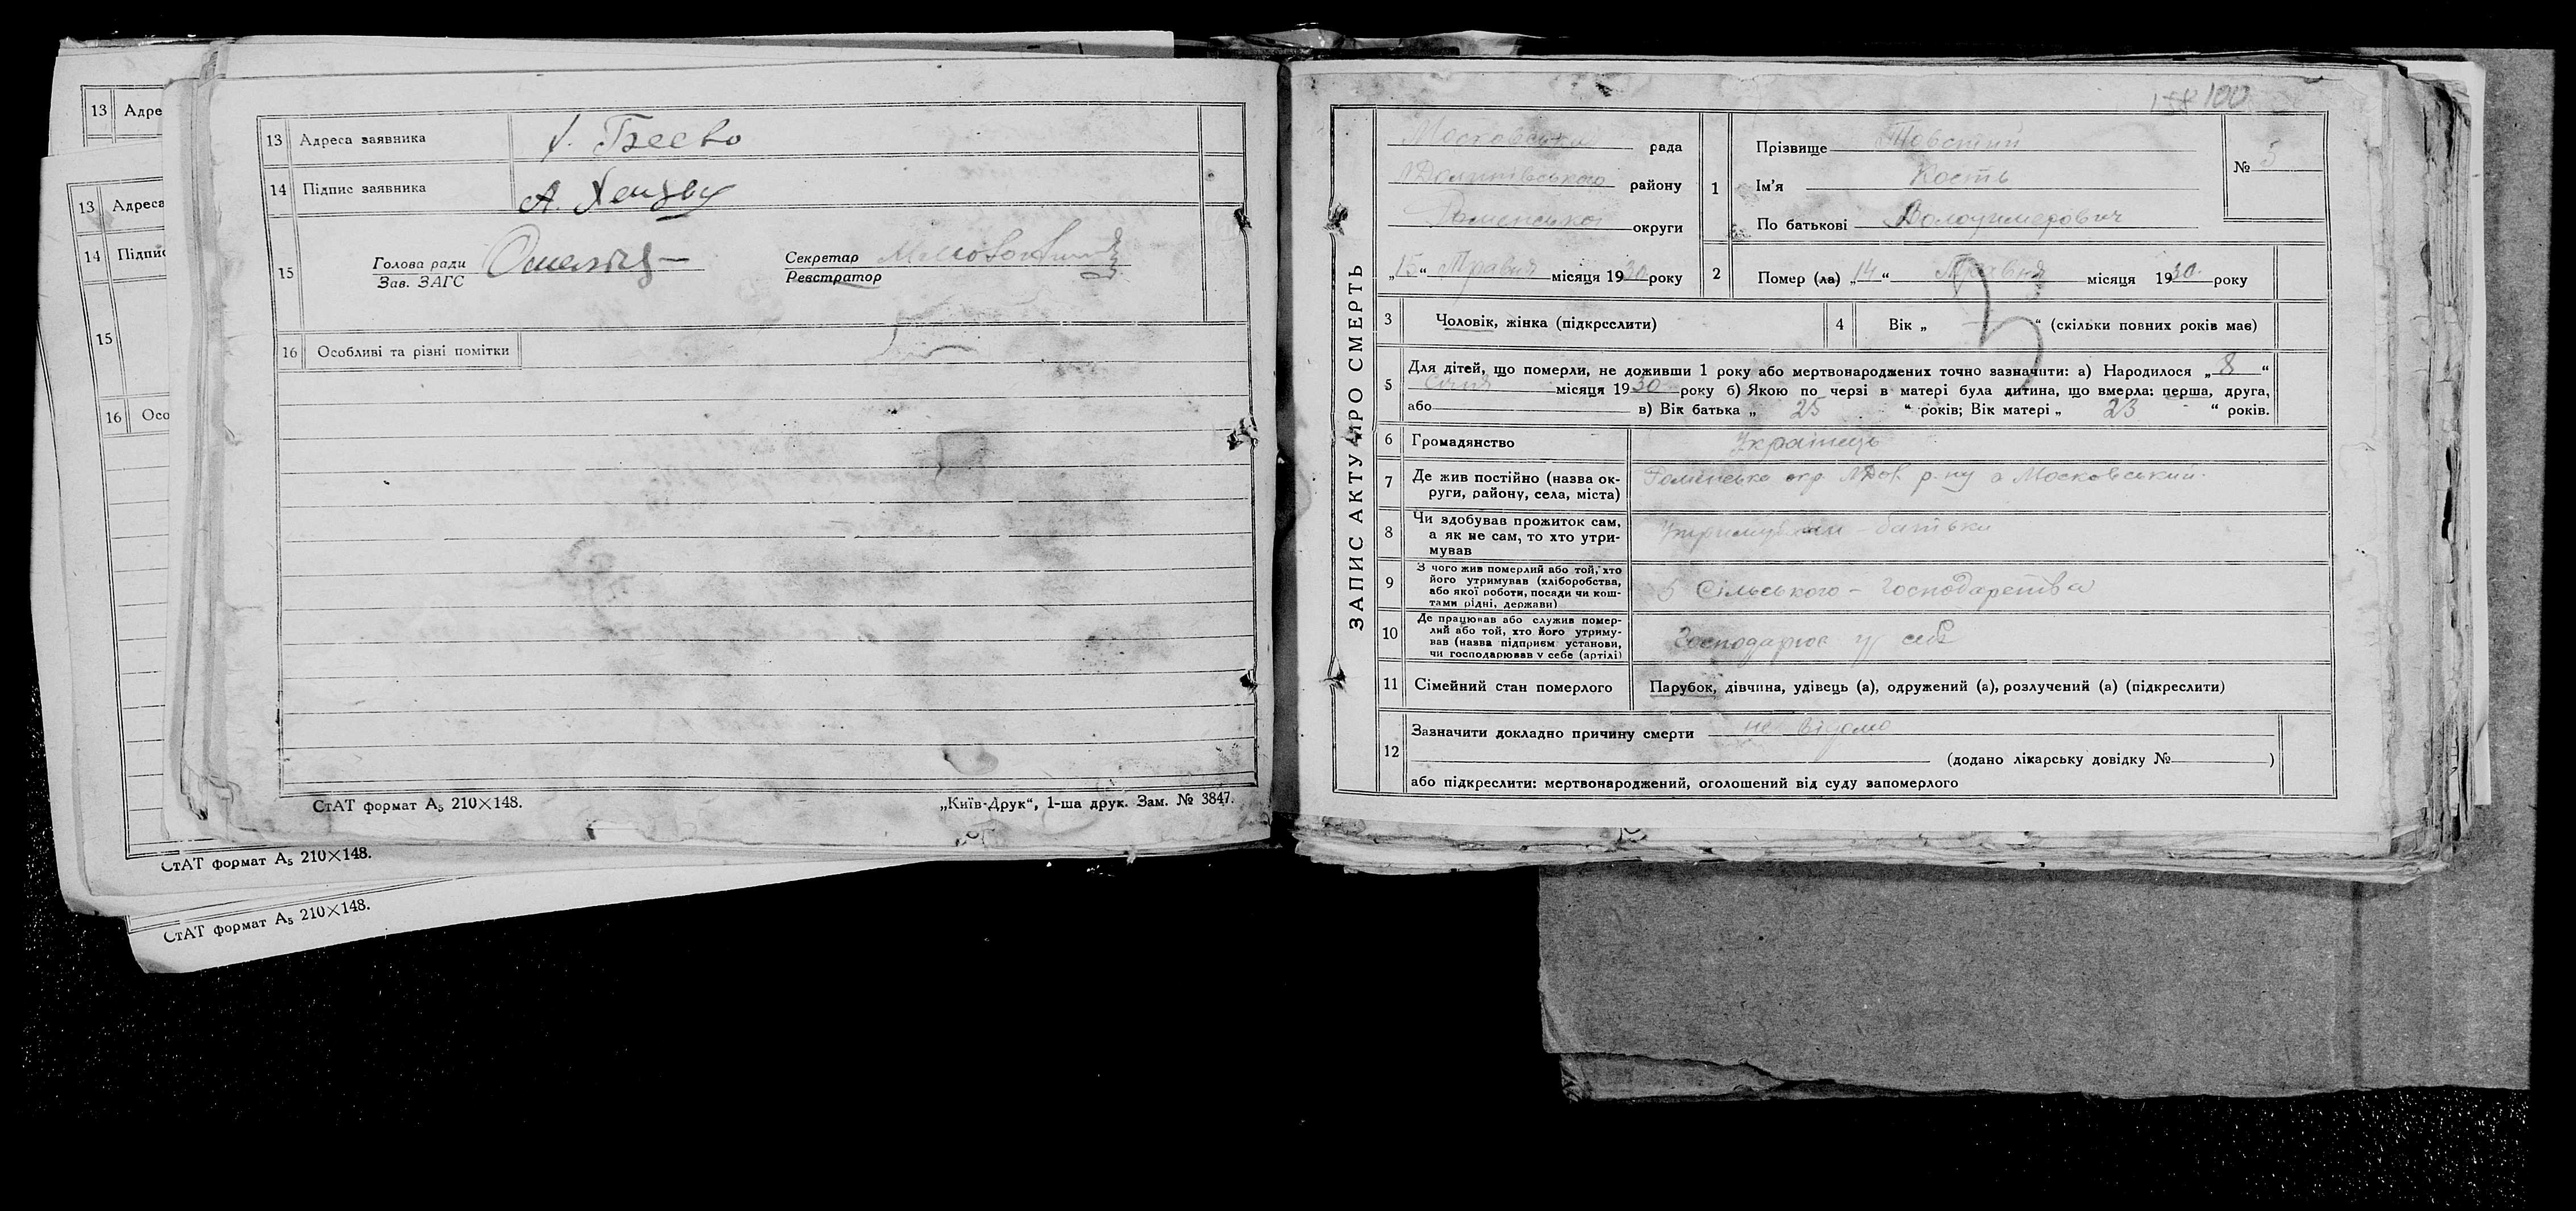 13 Адре
13 Адреса
14 Підпис
15
16 Осо
СтАТ формат А₅ 210×148.
СтАТ формат А₅ 210×148.
13 Адреса заявника х. Геєво
14 Підпис заявника А.
15 Голова ради
Зав. ЗАГС
Секретар
Реєстратор
16 Особливі та різні помітки
СтАТ формат А₅ 210×148.
„Київ-Друк“, 1-ша друк. Зам. № 3847.
100
ЗАПИС АКТУ ПРО СМЕРТЬ
Московська рада
району
Роменської округи
„15“ Травня місяця 1930 року
1 Прізвище Товстий
Ім'я Кость
По батькові Володимерович
№ 5
2 Помер (ла) „14“ Травня місяця 1930 року
3 Чоловік, жінка (підкреслити)
4 Вік „ — “ (скільки повних років має)
5 Для дітей, що померли, не доживши 1 року або мертвонароджених точно зазначити: а) Народилося „8“
Січня місяця 1930 року б) Якою по черзі в матері була дитина, що вмерла: перша, друга,
або в) Вік батька „ 25 “ років; Вік матері „ 23 “ років.
6 Громадянство Українець
7 Де жив постійно (назва округи, району, села, міста) Роменсько окр. р-ну х Московський
8 Чи здобував прожиток сам,
а як не сам, то хто утри-
мував
Утримували батьки
9 З чого жив померлий або той, хто
його утримував (хліборобства,
або якої роботи, посади чи кош-
тами рідні, держави)
з Сільського-господарства
10 Де працював або служив помер-
лий або той, хто його утриму-
вав (назва підприєм установи,
чи господарював у себе (артілі)
Господарюв у себе
11 Сімейний стан померлого Парубок, дівчина, удівець (а), одружений (а), розлучений (а) (підкреслити)
12 Зазначити докладно причину смерти не відомо
(додано лікарську довідку № )
або підкреслити: мертвонароджений, оголошений від суду запомерлого